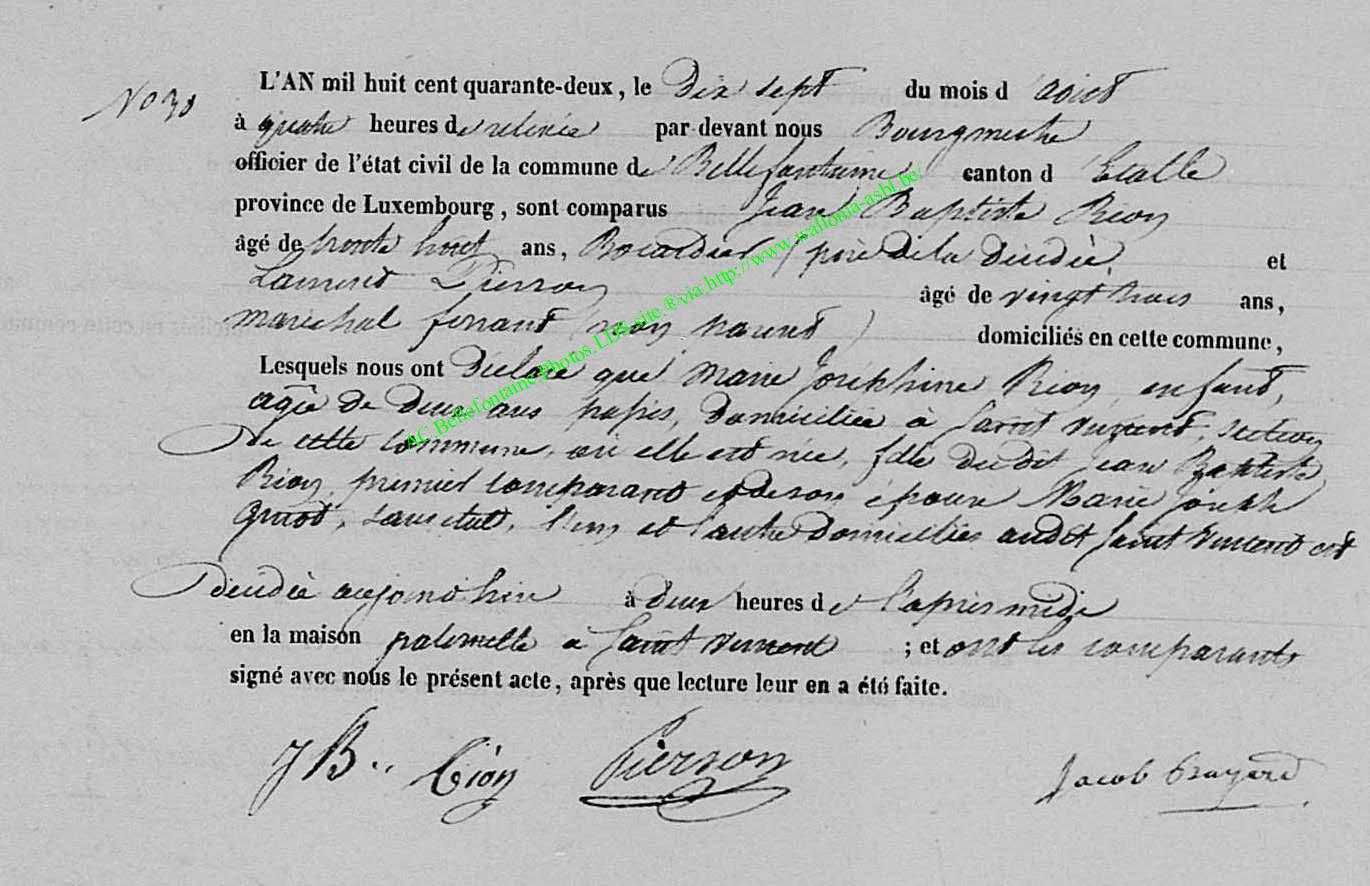 No 30
L'AN mil huit cent quarante-deux, le Dix sept du mois d'aout
à quatre heures de relevée par devant nous Bourgmestre
officier de l'état civil de la commune de Bellefontaine canton d'Etalle
province de Luxembourg, sont comparus Jean Baptiste Rion
âgé de trente huit ans, Bocardier (père de la décédée, et
Laurent Pierron âgé de vingt trois ans,
maréchal ferrant (non parent) domiciliés en cette commune,
Lesquels nous ont Déclaré que Marie Joséphine Rion, enfant,
agée de Deux ans passés, domiciliée à Saint Vincent, section
De cette commune, où elle est née, fille dudit Jean Baptiste
Rion, premier comparant et de son épouse Marie Joseph
sans état, l'un et l'autre Domiciliés audit Saint Vincent est
décédée aujourd'hui à deux heures de l'après midi
en la maison paternelle à Saint Vincent ; et ont les comparants
signé avec nous le présent acte, après que lecture leur en a été faite.
JB.. Rion Pierron Jacob
AC.Bellefontaine.Photos.LDS.site.®via.http://www.wallonia-asbl.be/